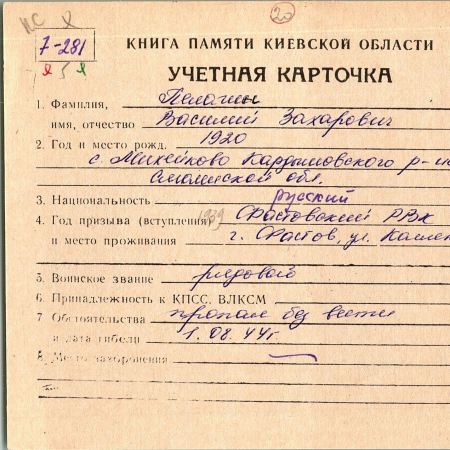 ИС
20
7-281
КНИГА ПАМЯТИ КИЕВСКОЙ ОБЛАСТИ
УЧЕТНАЯ КАРТОЧКА
1. Фамилия, Пелагин
имя, отчество Василий Захарович
2. Год и место рожд. 1920
с. Михейково Кардымовского р-н
Смоленской обл.
3. Национальность русский
4. Год призыва (вступления) 1939 Фастовский РВК
и место проживания г. Фастов, ул.
5. Воинское звание рядового
6. Принадлежность к КПСС, ВЛКСМ
7. Обстоятельства пропал без вести
и дата гибели 1.08.44г.
8. Место захоронения —